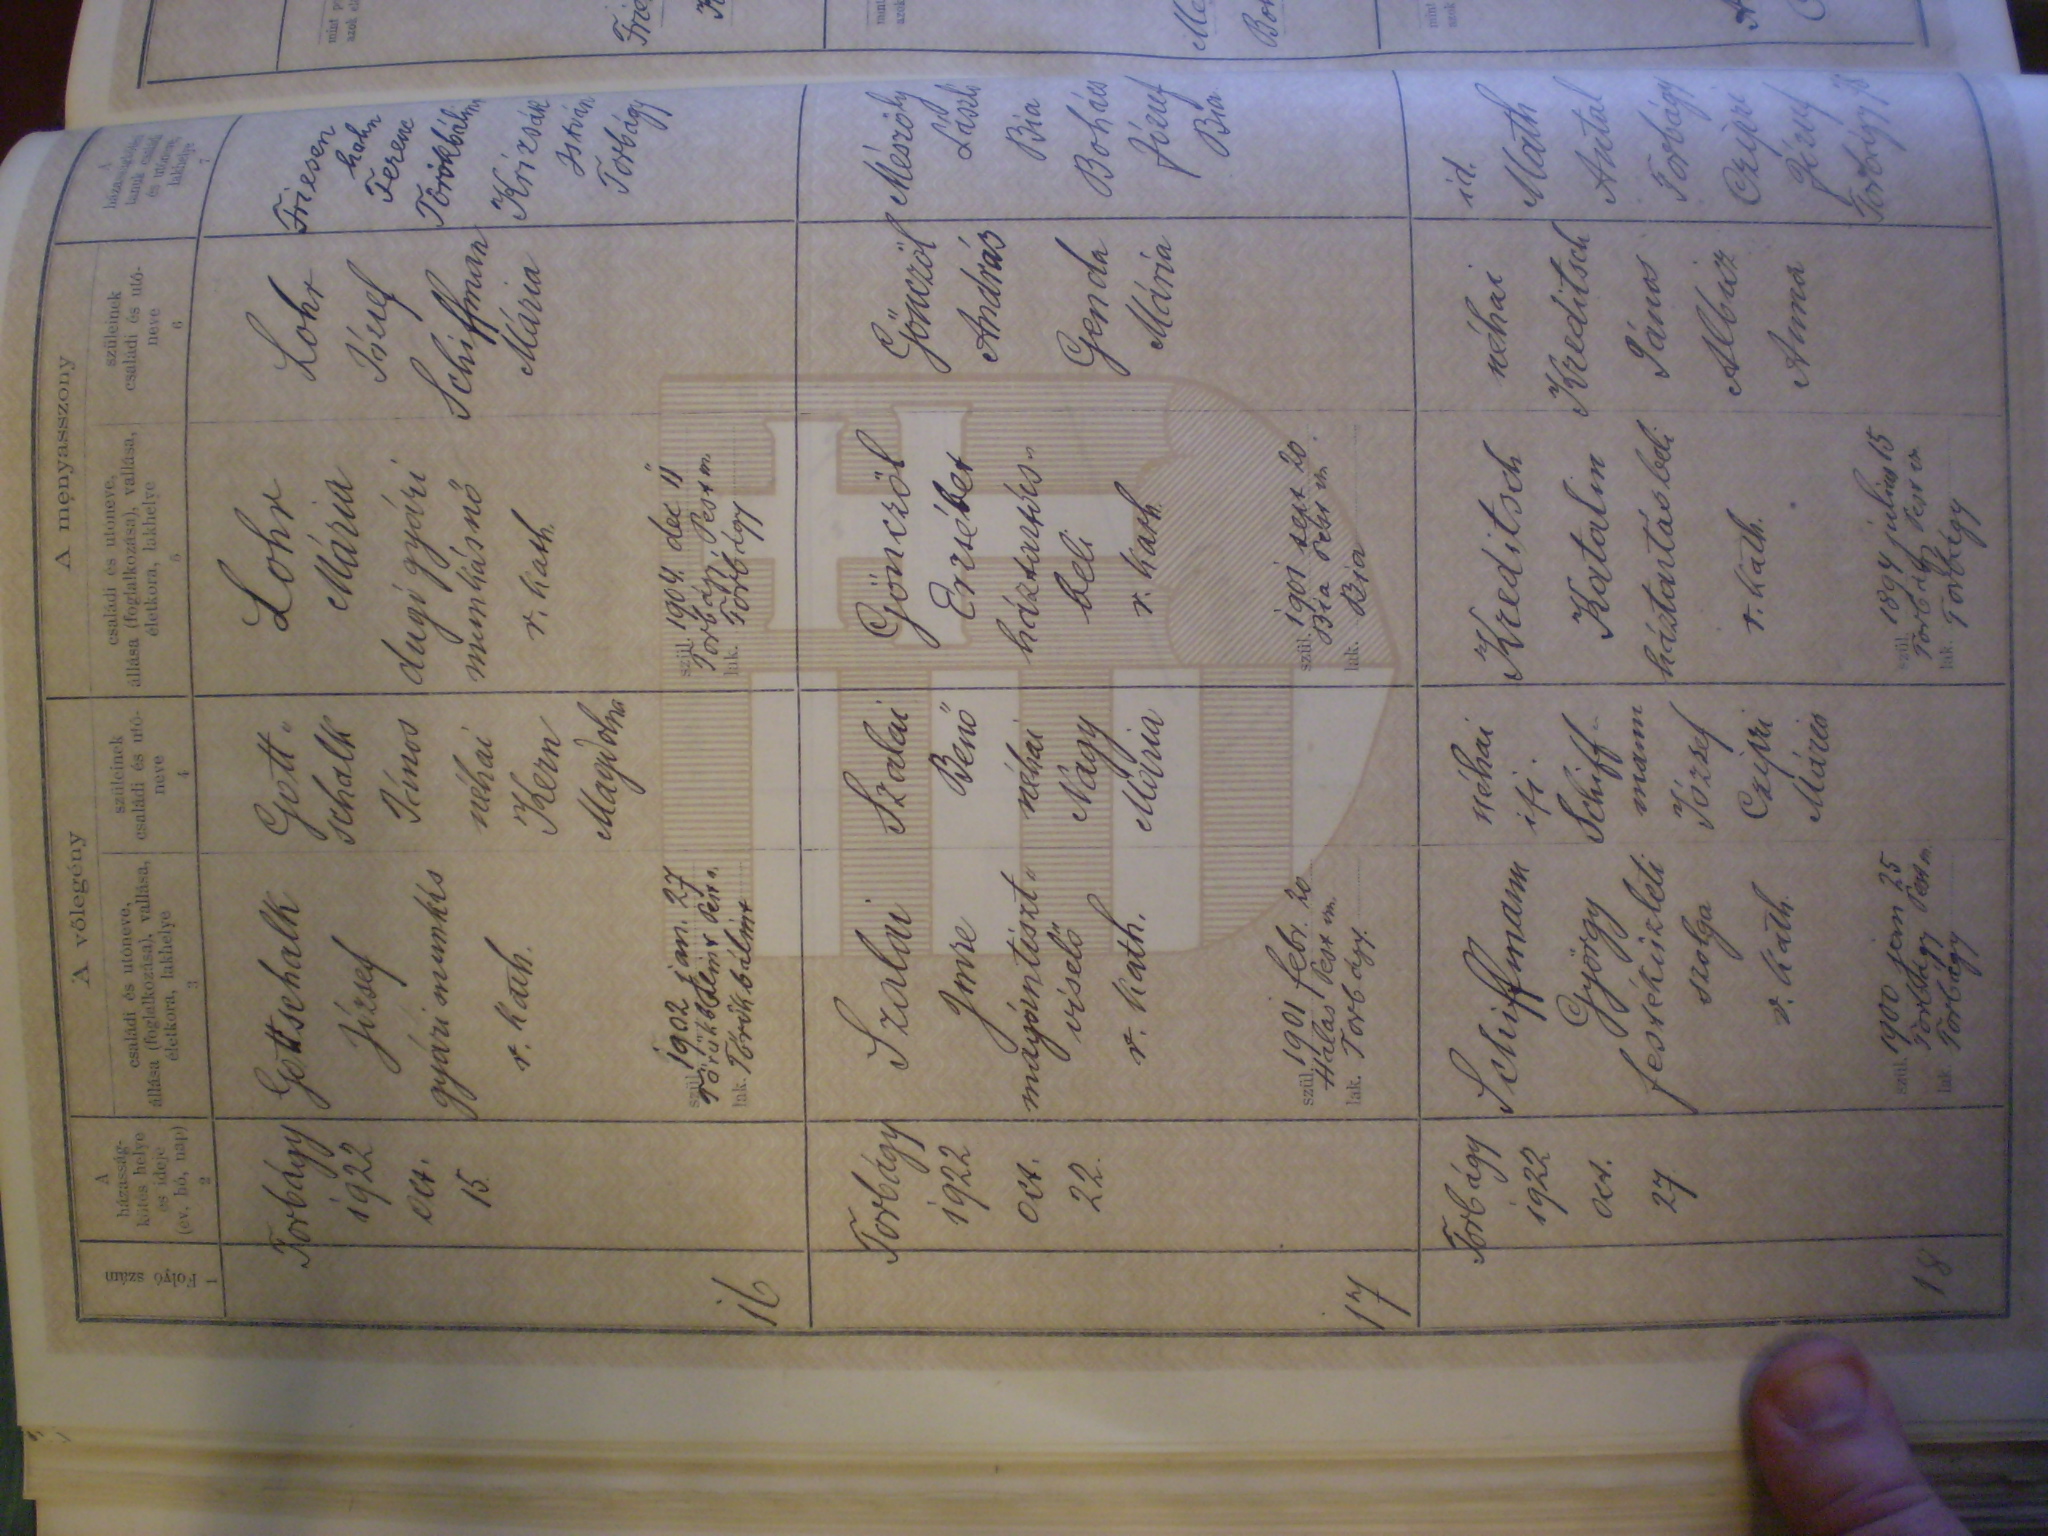 A vőlegény
A menyasszony
Folyó szám
1
A
házasság-
kötés helye
és ideje
(év, hó, nap)
2
családi és utóneve,
állása (foglalkozása), vallása,
életkora, lakhelye
3
szüleinek
családi és utó-
neve
4
családi és utóneve,
állása (foglalkozása), vallása,
életkora, lakhelye
5
szüleinek
családi és utó-
neve
6
A
házasságkötési
tanuk családi
és utóneve,
lakhelye
7
16
Torbágy
1922
oct.
15.
Gottschalk
József
gyári munkás
r. kath.
szül. 1902 jan. 27
Törökbálint Pest m.
lak. Törökbálint
Gott-
schalk
János
néhai
Kern
Magdolna
Lohr
Mária
munkásnő
r. kath.
szül. 1904. dec 11
Torbágy Pest m.
lak. Torbágy
Lohr
József
Schiffman
Mária
Friesen
hahn
Ferenc
Törökbálint
Krizsák
István
Torbágy
17
Torbágy
1922
oct.
22.
Szalai
Imre
magántiszt-
viselő
r. kath.
szül. 1901 febr. 20
Halas Pest m.
lak. Torbágy.
Szalai
Benő
néhai
Nagy
Mária
Gönczöl
Erzsébet
háztartás-
beli
r. kath.
szül. 1901 sept 20.
Bia Pest m.
lak. Bia
Gönczöl
András
Genda
Mária
Mészöly
László
Bia
Bohács
József
Bia
18
Torbágy
1922
oct.
27
Schiffmann
György
szolga
r. kath.
szül. 1900 25
Torbágy Pest m.
lak. Torbágy
néhai
ifj.
Schiff-
mann
József
Czipri
Mária
Kreditsch
Katalin
háztartásbeli
r. kath.
szül. 1894 julius 15
Torbágy Pest m
lak. Torbágy
néhai
Kreditsch
János
Albisz
Anna
id.
Math
Antal
Torbágy
Czipri
József
Torbágy